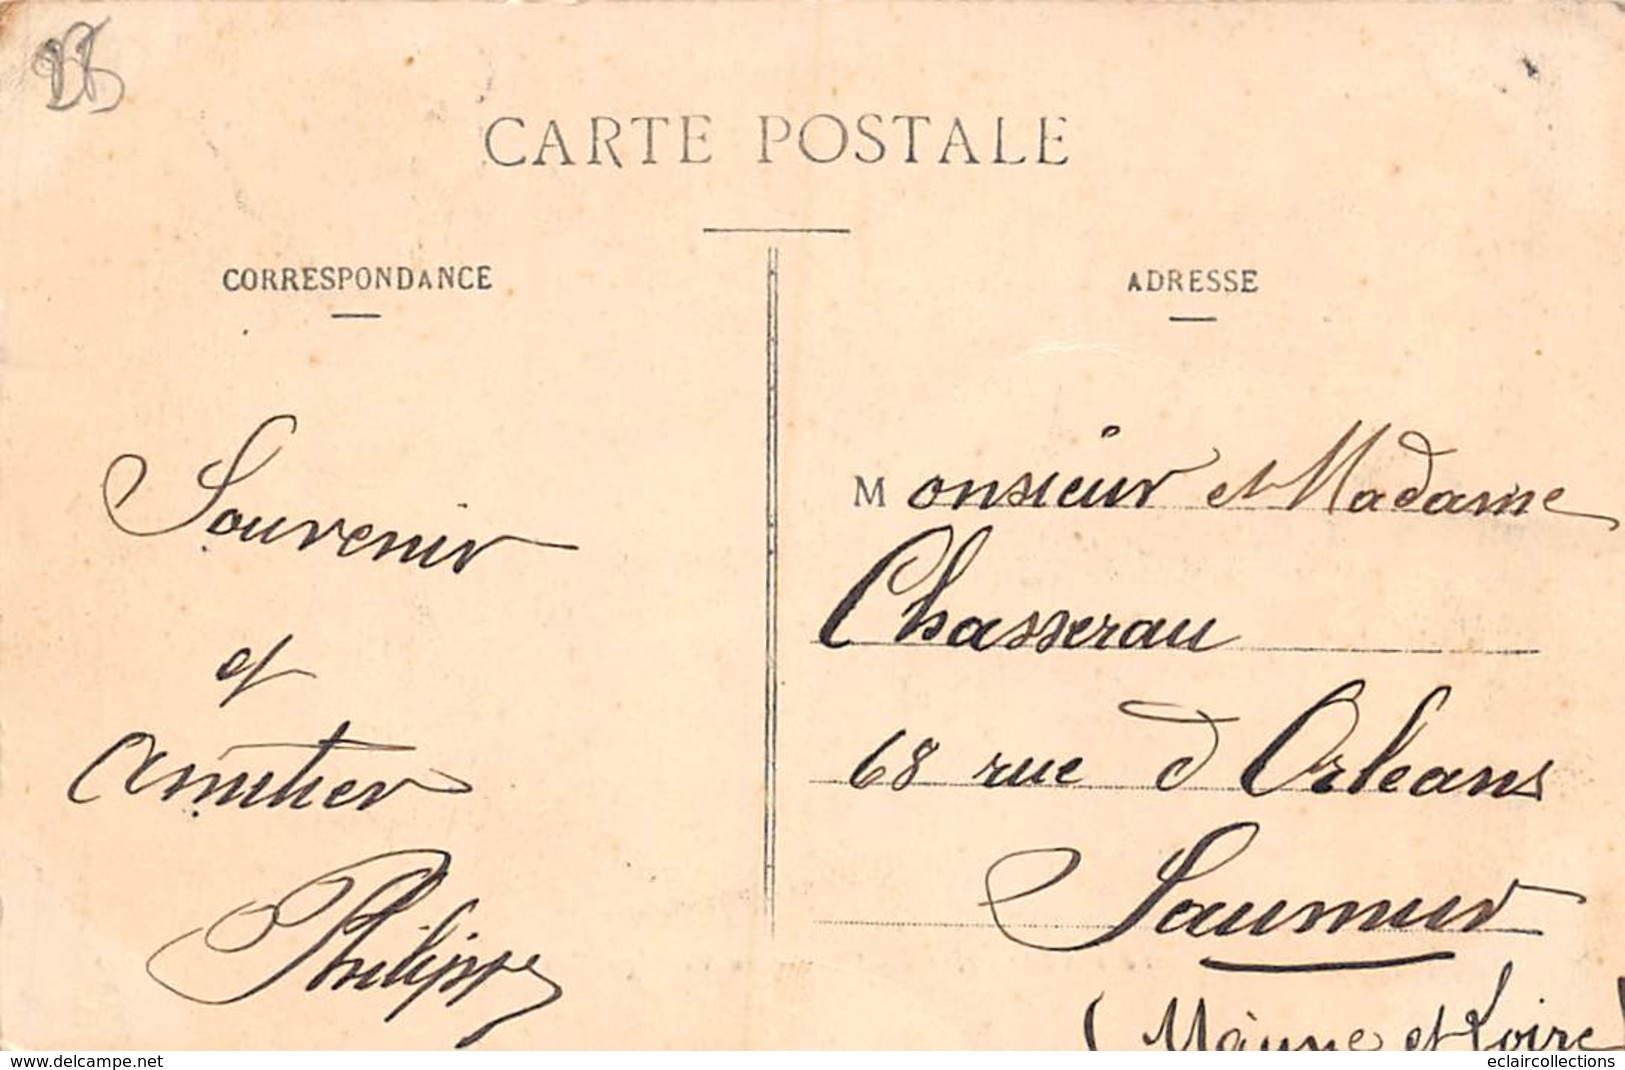 CARTE POSTALE
CORRESPONDANCE
ADRESSE
Souvenir
et
Amitier
Philippe
Monsieur et Madame
Chasserau
68 rue d'Orleans
Saumur
(Mainne et Loire)
delcampe.net
eclaircollections